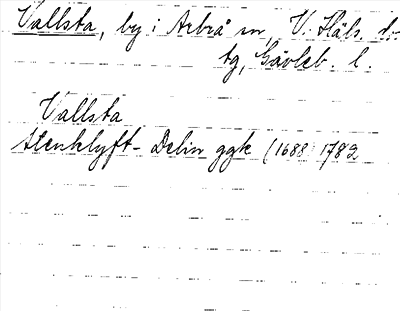 Vallsta, by i Arbrå sn, V. Häls. d:s
tg, Gävleb. l.
Vallsta
Stenklyft- Delin ggk (1688 1782